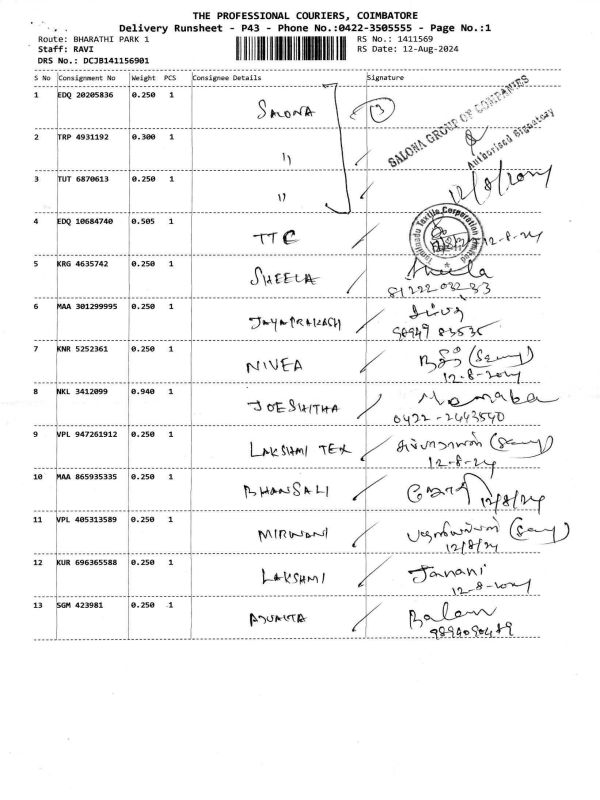 THE PROFESSIONAL COURIERS, COIMBATORE
Delivery Runsheet - P43 - Phone No.:0422-3505555 - Page No.:1
Route: BHARATHI PARK 1 RS No.: 1411569
Staff: RAVI RS Date: 12-Aug-2024
DRS No.: DCJB141156901
S No Consignment No Weight PCS Consignee Details Signature
1 EDQ 20205836 0.250 1 SALONA 3 SALONA GROUP OF COMPANIES
2 TRP 4931192 0.300 1 " Authorised Signatory
3 TUT 6870613 0.250 1 " 12/8/2024
4 EDQ 10684740 0.505 1 TTC Tamilnadu Textile Corporation Limited 12-8-24
5 KRG 4635742 0.250 1 SHEELA Sheela
81222 03233
6 MAA 301299995 0.250 1 JAYAPRAKASH
98949 83535
7 KNR 5252361 0.250 1 NIVEA
12-8-2024
8 NKL 3412099 0.940 1 JOESHITHA
0422-2443540
9 VPL 947261912 0.250 1 LAKSHMI TEX
12-8-24
10 MAA 865935335 0.250 1 BHANSALI 12/8/24
11 VPL 405313589 0.250 1
12/8/24
12 KUR 696365588 0.250 1 LAKSHMI Janani
12-8-2024
13 SGM 423981 0.250 1 Balan